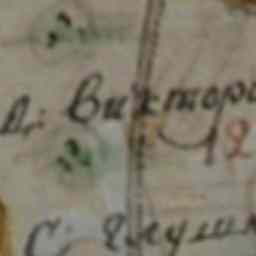 Д: Викторо
12
С: Глуши